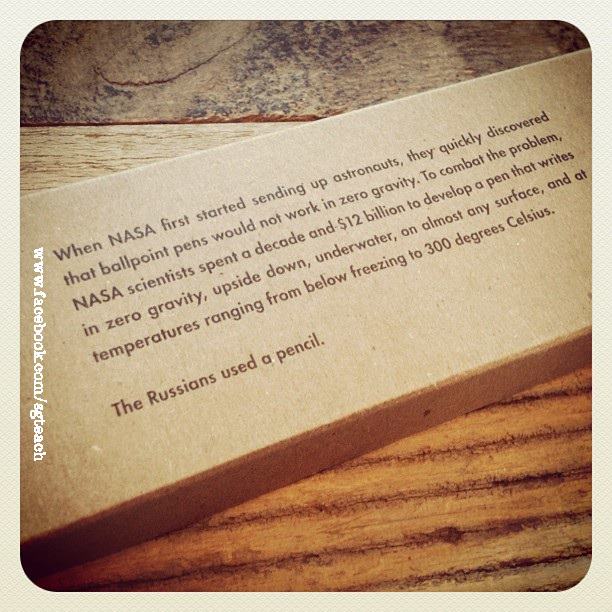 When NASA first started sending up astronauts, they quickly discovered
that ballpoint pens would not work in zero gravity. To combat the problem,
NASA scientists spent a decade and $12 billion to develop a pen that writes
in zero gravity, upside down, underwater, on almost any surface, and at
temperatures ranging from below freezing to 300 degrees Celsius.
The Russians used a pencil.
www.facebook.com/sgteach